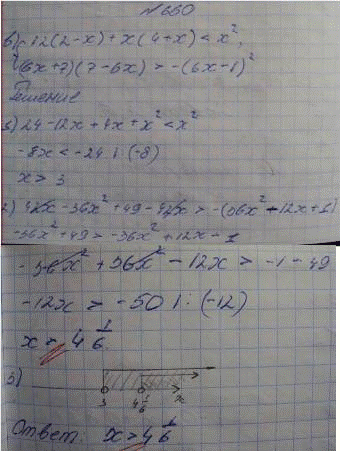 №660
б) 12(2-x)+x(4+x)<x²,
(6x+7)(7-6x)>-(6x-1)²
Решение
1) 24-12x+4x+x²<x²
-8x<-24 |:(-8)
x>3
2) 42x-36x²+49-42x>-(36x²-12x+1)
-36x²+49>-36x²+12x-1
-36x²+36x²-12x>-1-49
-12x>-50 |:(-12)
x>4 1/6
3)
3 4 1/6 x
Ответ. x>4 1/6